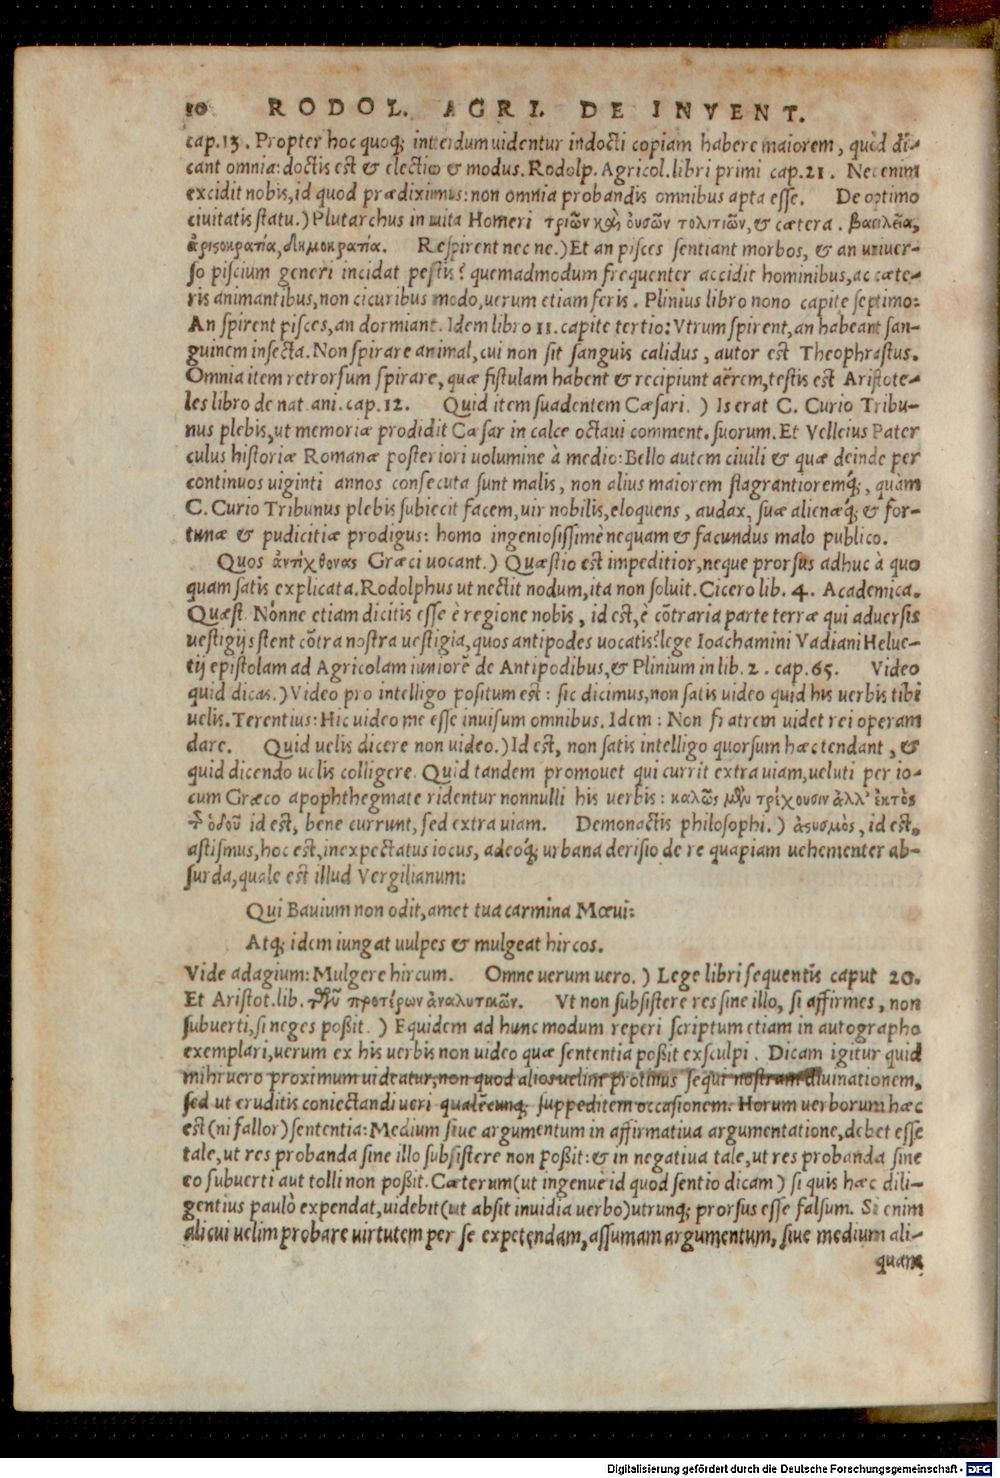 10 RODOL. AGRI. DE INVENT.
cap.13. Propter hoc quoq; interdum uidentur indocti copiam habere maiorem, quòd di-
cant omnia: doctis est & electio & modus. Rodolp. Agricol. libri primi cap.21. Nec enim
excidit nobis, id quod prædiximus: non omnia probandis omnibus apta esse. De optimo
ciuitatis statu.) Plutarchus in uita Homeri τριῶν καὶ ὀυσῶν τολιτιῶν, & cætera. βασιλεία,
ἀριςοκρατία, δημοκρατία. Respirent nec ne.) Et an pisces sentiant morbos, & an uniuer-
so piscium generi incidat pestis? quemadmodum frequenter accidit hominibus, ac cæte-
ris animantibus, non cicuribus modo, uerum etiam feris. Plinius libro nono capite septimo:
An spirent pisces, an dormiant. Idem libro 11. capite tertio: Vtrum spirent, an habeant san-
guinem insecta. Non spirare animal, cui non sit sanguis calidus, autor est Theophrastus.
Omnia item retrorsum spirare, quæ fistulam habent & recipiunt aërem, testis est Aristote-
les libro de nat. ani. cap.12. Quid item suadentem Cæsari.) Is erat C. Curio Tribu-
nus plebis, ut memoriæ prodidit Cæsar in calce octaui comment. suorum. Et Velleius Pater
culus historiæ Romanæ posteriori uolumine à medio: Bello autem ciuili & quæ deinde per
continuos uiginti annos consecuta sunt malis, non alius maiorem flagrantioremq́;, quàm
C. Curio Tribunus plebis subiecit facem, uir nobilis, eloquens, audax, suæ alienæq́; & for-
tunæ & pudicitiæ prodigus: homo ingeniosissimè nequam & facundus malo publico.
Quos ἀντίχθονας Græci uocant.) Quæstio est impeditior, neque prorsus adhuc à quo
quam satis explicata. Rodolphus ut nectit nodum, ita non soluit. Cicero lib. 4. Academica.
Quæst. Nónne etiam dicitis esse è regione nobis, id est, è cōtraria parte terræ qui aduersis
uestigijs stent cōtra nostra uestigia, quos antipodes uocatis? lege Ioachamini Vadiani Helue-
tij epistolam ad Agricolam iuniorē de Antipodibus, & Plinium in lib. 2. cap.65. Video
quid dicas.) Video pro intelligo positum est: sic dicimus, non satis uideo quid his uerbis tibi
uelis. Terentius: Hic uideo me esse inuisum omnibus. Idem: Non fratrem uidet rei operam
dare. Quid uelis dicere non uideo.) Id est, non satis intelligo quorsum hæc tendant, &
quid dicendo uelis colligere. Quid tandem promouet qui currit extra uiam, ueluti per io-
cum Græco apophthegmate ridentur nonnulli his uerbis: καλῶς μὲν τρέχουσιν ἀλλ' ἐκτὸς
τ῀ ὁδοῦ id est, bene currunt, sed extra uiam. Demonactis philosophi.) ἀςυσμὸς, id est,
astismus, hoc est, inexpectatus iocus, adeoq́; urbana derisio de re quapiam uehementer ab-
surda, quale est illud Vergilianum:
Qui Bauium non odit, amet tua carmina Mœui:
Atq; idem iungat uulpes & mulgeat hircos.
Vide adagium: Mulgere hircum. Omne uerum uero.) Lege libri sequentis caput 20.
Et Aristot. lib. τῶν προτέρων ἀναλυτικῶν. Vt non subsistere res sine illo, si affirmes, non
subuerti, si neges poßit.) Equidem ad hunc modum reperi scriptum etiam in autographo
exemplari, uerum ex his uerbis non uideo quæ sententia poßit exsculpi. Dicam igitur quid
mihi uero proximum uideatur, non quod alios uelim protinus sequi nostram diuinationem,
sed ut eruditis coniectandi ueri qualēcunq; suppeditem occasionem. Horum uerborum hæc
est (ni fallor) sententia: Medium siue argumentum in affirmatiua argumentatione, debet esse
tale, ut res probanda sine illo subsistere non poßit: & in negatiua tale, ut res probanda sine
eo subuerti aut tolli non poßit. Cæterum (ut ingenuè id quod sentio dicam) si quis hæc dili-
gentius paulò expendat, uidebit (ut absit inuidia uerbo) utrunq; prorsus esse falsum. Si enim
alicui uelim probare uirtutem per se expetendam, assumam argumentum, siue medium ali-
quam
Digitalisierung gefördert durch die Deutsche Forschungsgemeinschaft - DFG